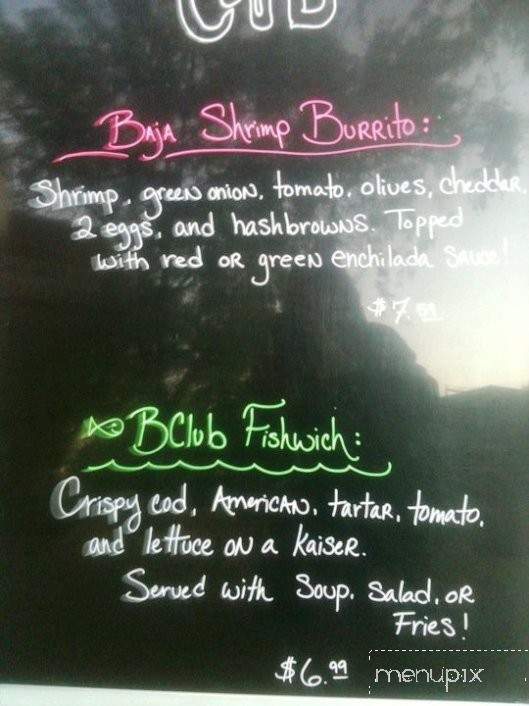 Baja Shrimp Burrito:
Shrimp, green onion, tomato, olives, cheddar,
2 eggs, and hashbrowns. Topped
with red or green enchilada sauce!
$7.99
BClub Fishwich:
Crispy cod, American, tartar, tomato,
and lettuce on a Kaiser.
Served with Soup, Salad, or
Fries!
$6.99
menupix